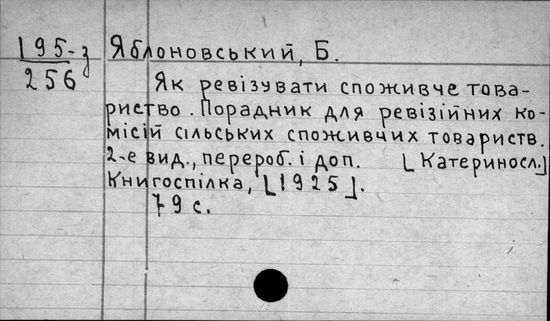 195-з Яблоновський, Б.
256
Як ревізувати споживче това-
риство. Порадник для ревізійних ко-
місій сільських споживчих товариств.
2-е вид., перероб. і доп. [Катериносл.]
Книгоспілка, [1925].
79 с.